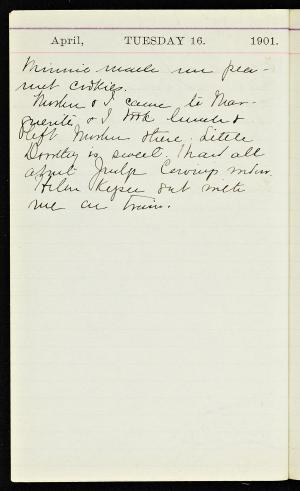 April, TUESDAY 16. 1901.
Minnie made me pea-
nut cookies.
Mother & I came to Mar-
guerite, & I took lunch &
left Mother there. Little
Dorothy is sweet. I had all
about Judge
Helen Keyser out with
me on train.